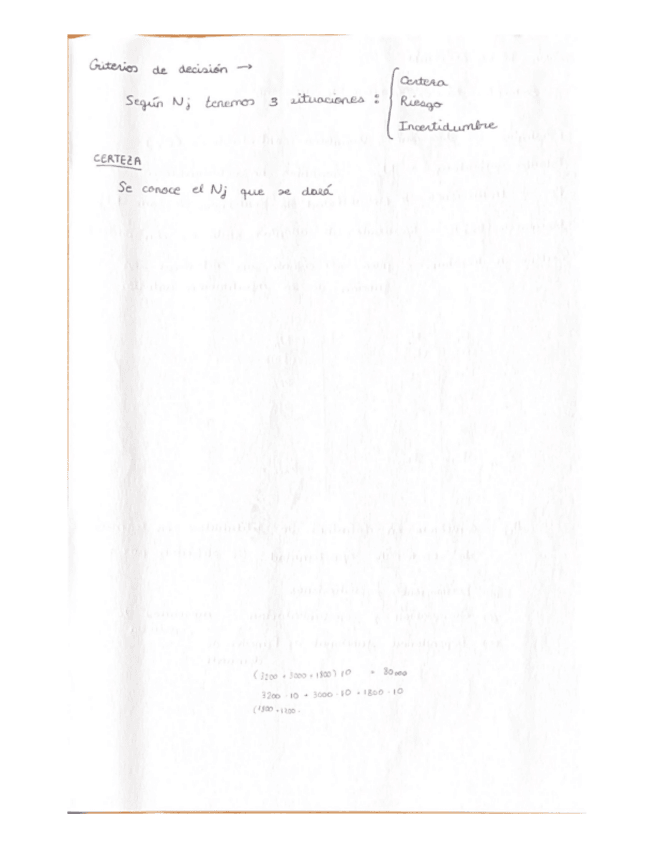 Criterios de decisión →
Según Nj tenemos 3 situaciones :
Certeza
Riesgo
Incertidumbre
CERTEZA
Se conoce el Nj que se dará
(3200 + 3000 + 1800) 10 = 80000
3200 · 10 + 3000 · 10 + 1800 · 10
(1800 +